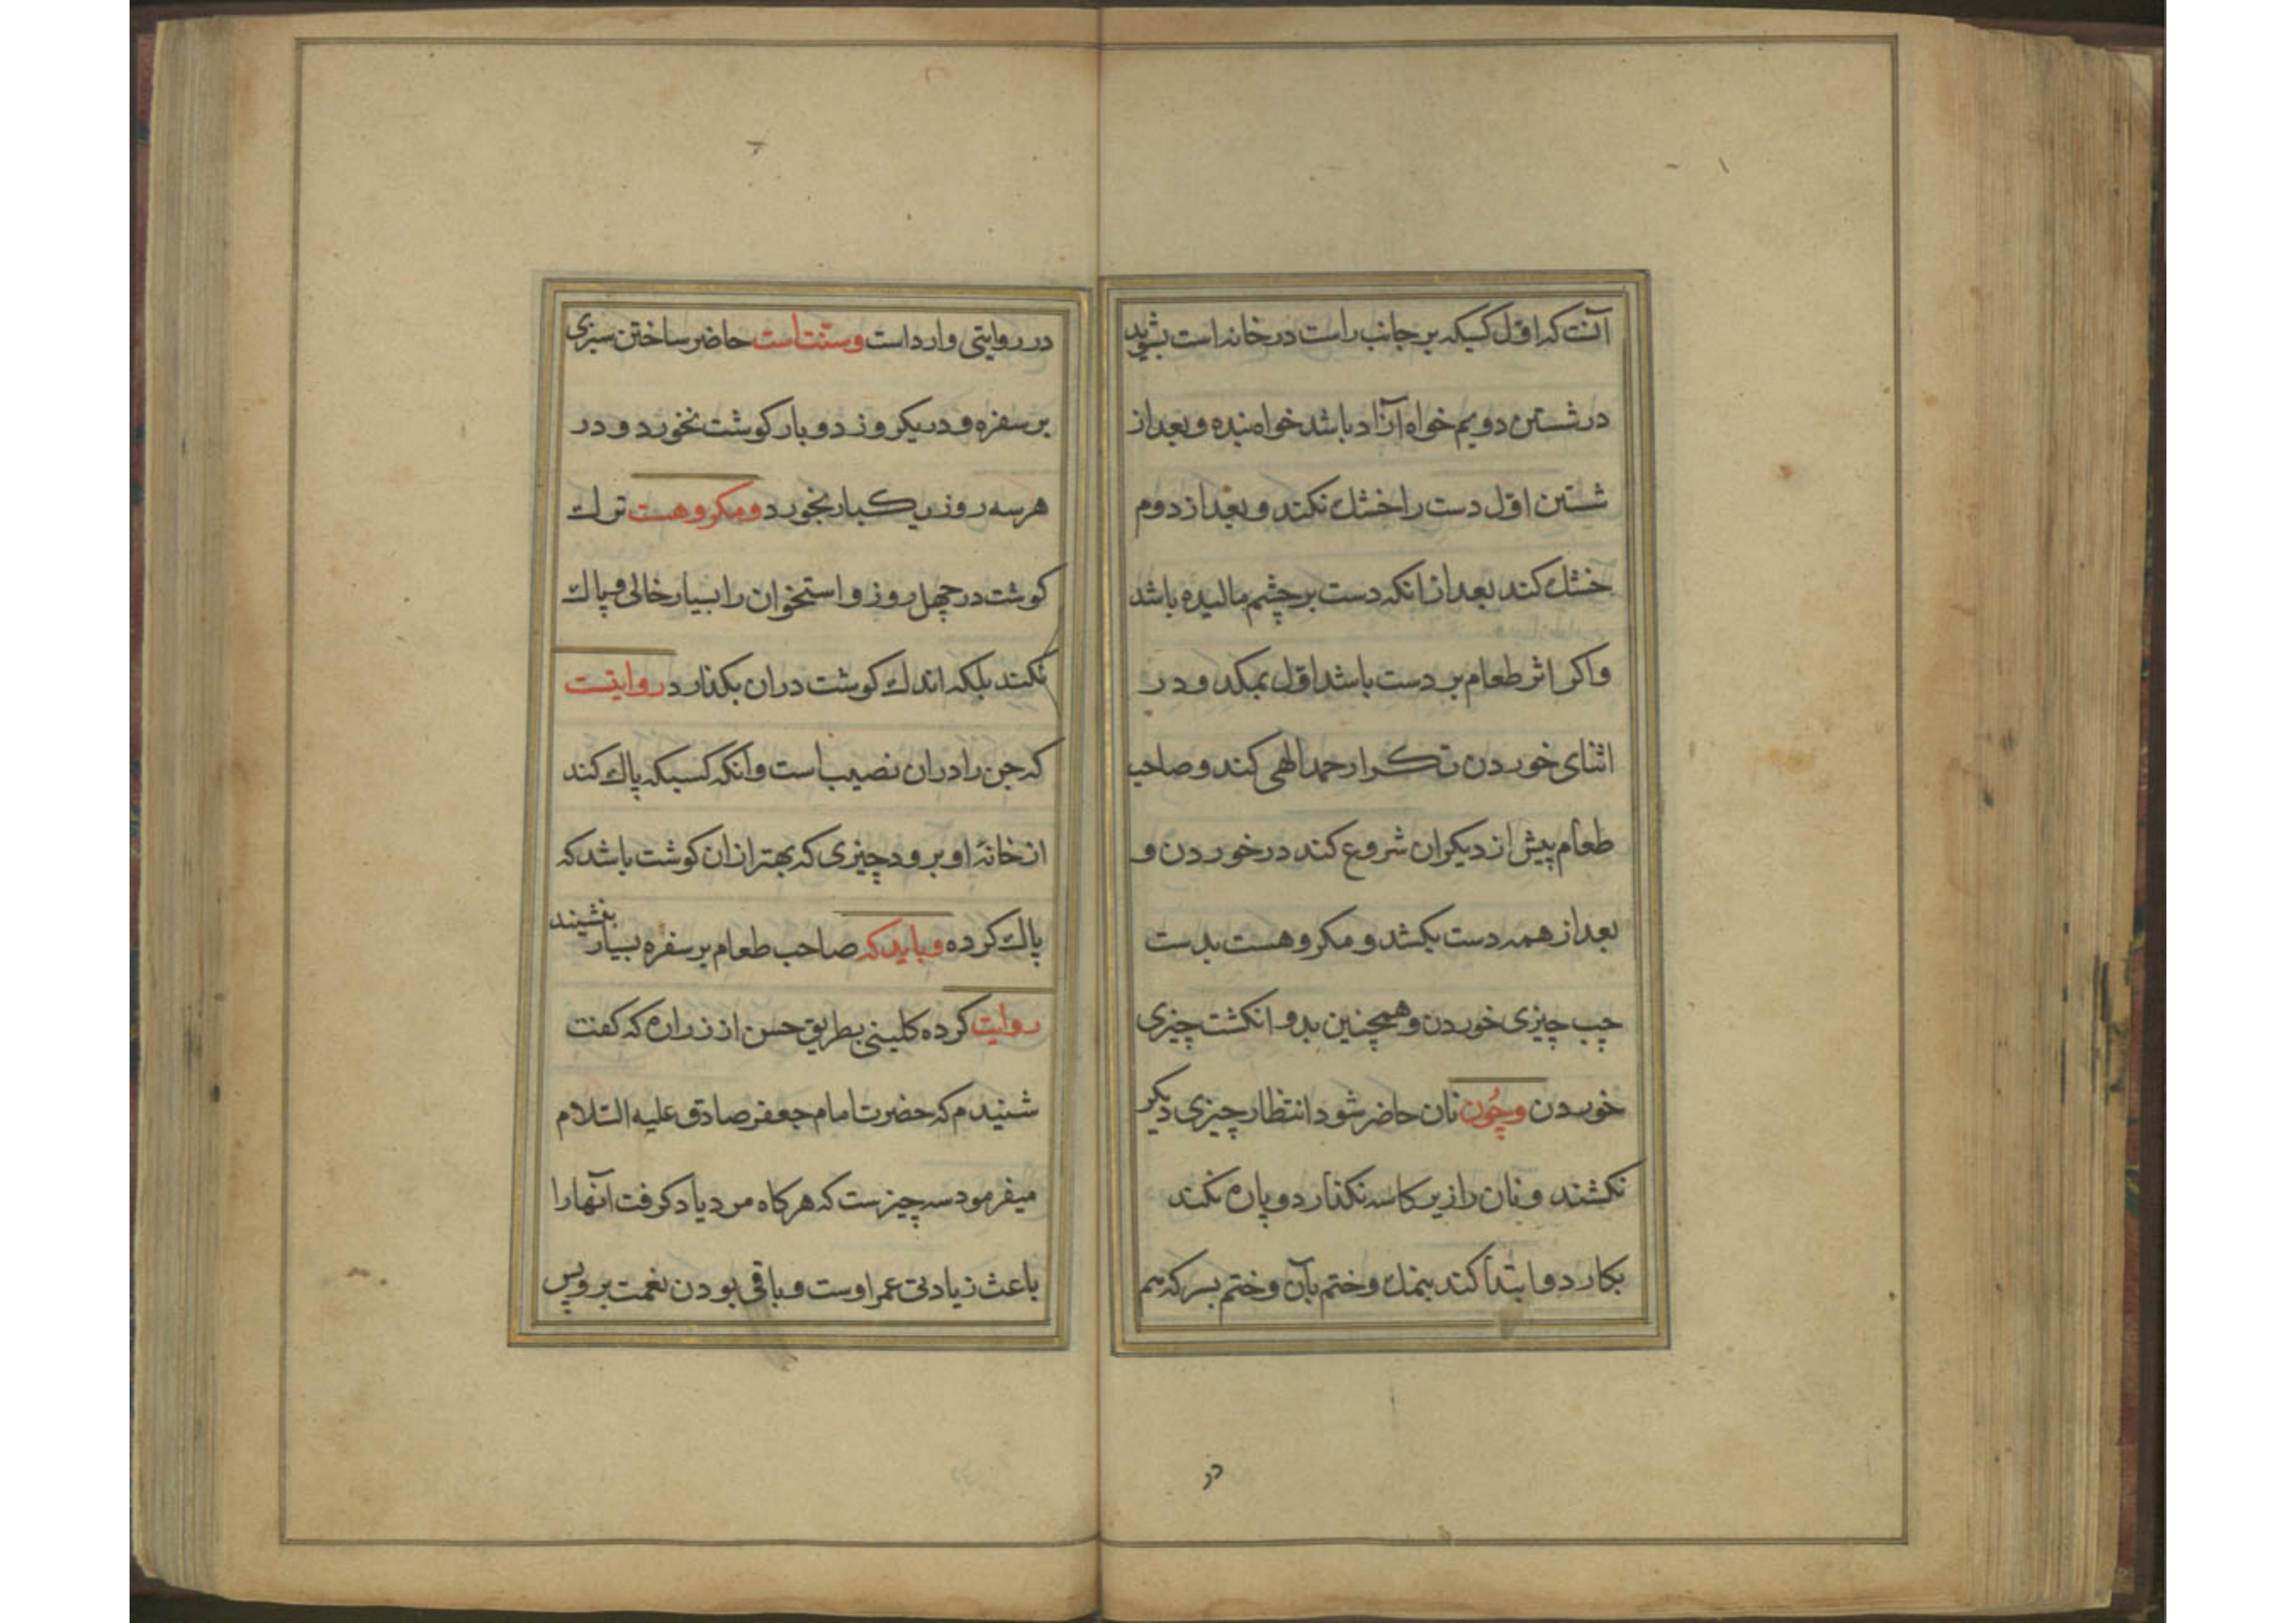 آنست که اول کسیکه بر جانب راست در خانه است بشوید
در شستن دویم خواه آزاد باشد خواه بنده و بعد از
شستن اول دست را خشك نکند و بعد از دوم
خشك کند بعد از انکه دست بر چشم مالیده باشد
و اکر اثر طعام بر دست باشد اول بمکد و در
اثنای خوردن تکرار حمد الهی کند و صاحب
طعام پیش از دیکران شروع کند در خوردن و
بعد از همه دست بکشد و مکروهست بدست
چپ چیزی خوردن و همچنین بدو انکشت چیزی
خوردن و چُون نان حاضر شود انتظار چیزی دیکر
نکشند و نان را زیر کاسه نکذارد و پاره نکند
بکارد و ابتدا کند بنمك و ختم بآن و ختم بسرکه هم
در
در روایتی وارد است و سنت است حاضر ساختن سبزی
بر سفره و در یکروز دو بار کوشت نخورد و در
هر سه روز یکبار بخورد و مکروهست ترك
کوشت در چهل روز و استخوان را بسیار خالی و پاك
نکند بلکه اندك کوشت در ان بکذارد روایتست
که جن را در ان نصیب است و آنکه کسیکه پاك کند
از خانهٔ او برود چیزی که بهتر از ان کوشت باشد که
پاك کرده و باید که صاحب طعام بر سفره بسیار بنشیند
روایت کرده کلینی بطریق حسن از زراره که کفت
شنیدم که حضرت امام جعفر صادق علیه السّلام
میفرمود سه چیزست که هرکاه مرد یاد کرفت آنها را
باعث زیادتی عمر اوست و باقی بودن نعمت برو پس